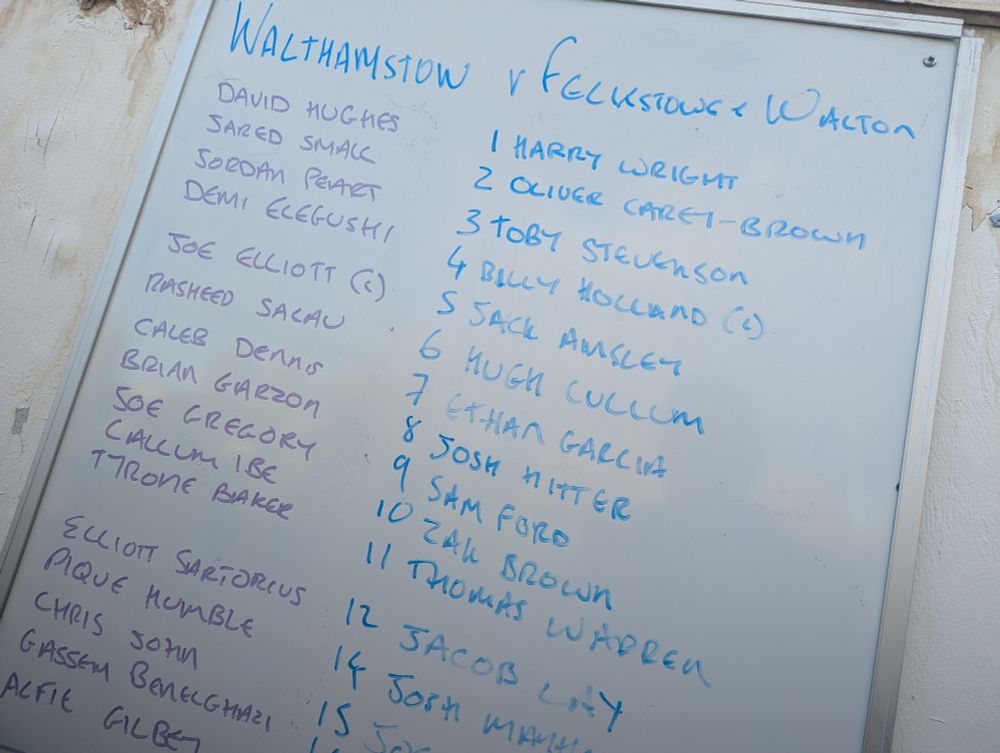 WALTHAMSTOW v FELIXSTOWE & WALTON
DAVID HUGHES
JARED SMALL
JORDAN PEART
DEMI ELEGUSHI
JOE ELLIOTT (C)
RASHEED SALAU
CALEB DENNIS
BRIAN GARZON
JOE GREGORY
CALLUM IBE
TYRONE BAKER
ELLIOTT SARTORIUS
PIQUE HUMBLE
CHRIS JOHN
GASSEM BENELGHAZI
ALFIE GILBEY
1 HARRY WRIGHT
2 OLIVER CAREY-BROWN
3 TOBY STEVENSON
4 BILLY HOLLAND (C)
5 JACK AINSLEY
6 HUGH CULLUM
7 ETHAN GARCIA
8 JOSH HITTER
9 SAM FORD
10 ZAK BROWN
11 THOMAS WARREN
12 JACOB LAY
14 JOSH
15 JOE